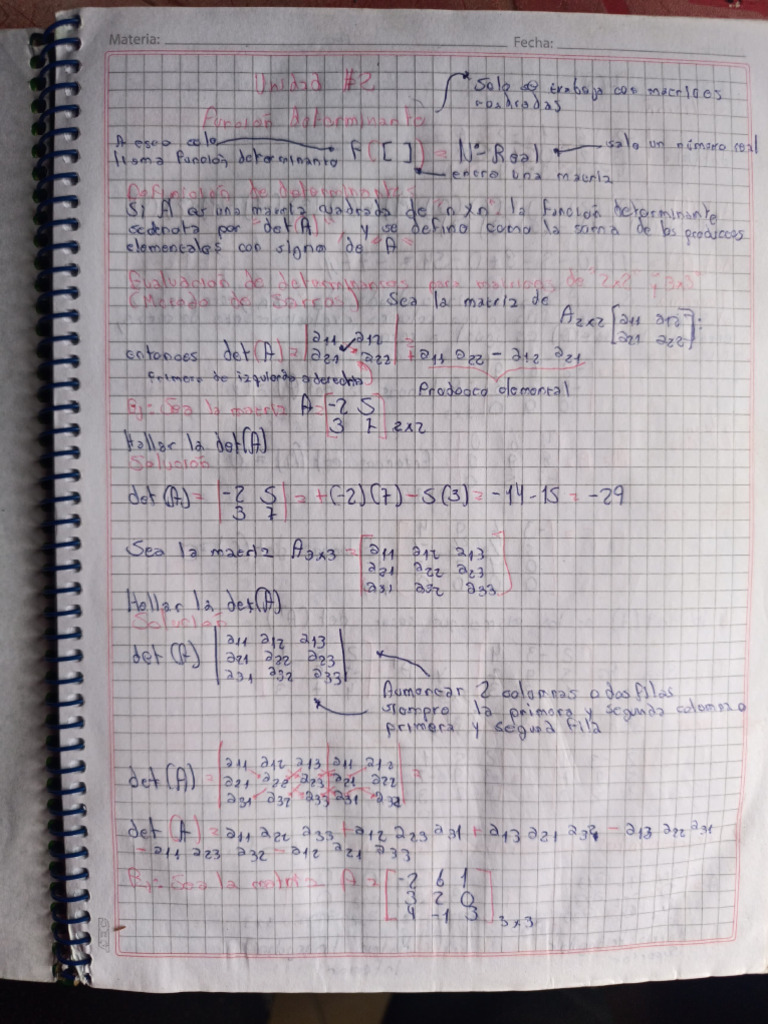 Materia: Fecha:
Unidad #2
Solo se trabaja con matrices
cuadradas
Función determinante
A esto se lo
llama función determinante F([ ]) = Nº Real
sale un número real
entra una matriz
Definición de determinantes
Si A es una matriz cuadrada de "n x n" la función determinante
se denota por "det(A)", y se define como la suma de los productos
elementales con signo de "A"
Evaluación de determinantes para matrices de "2x2" y "3x3"
(Metodo de Sarrus) Sea la matriz de
A2x2 [a11 a12; a21 a22]:
entonces det(A) = |a11 a12; a21 a22| = +a11 a22 - a12 a21
Primero de izquierda a derecha
Producto elemental
Ej: Sea la matriz A = [-2 5; 3 7] 2x2
Hallar la det(A)
Solución
det(A) = |-2 5; 3 7| = +(-2)(7) - 5(3) = -14 - 15 = -29
Sea la matriz A3x3 = [a11 a12 a13; a21 a22 a23; a31 a32 a33]
Hallar la det(A)
Solución
det(A) |a11 a12 a13; a21 a22 a23; a31 a32 a33|
Aumentar 2 columnas o dos filas
siempre la primera y segunda columna o
primera y segunda fila
det(A) = |a11 a12 a13 a11 a12; a21 a22 a23 a21 a22; a31 a32 a33 a31 a32| =
det(A) = a11 a22 a33 + a12 a23 a31 + a13 a21 a32 - a13 a22 a31
- a11 a23 a32 - a12 a21 a33
Ej: Sea la matriz A = [-2 6 1; 3 2 0; 4 -1 3] 3x3